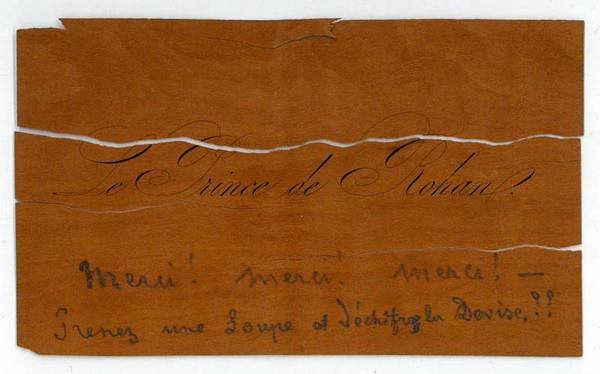 Le Prince de Rohan.
Merci! Merci! Merci! —
Prenez une Loupe et déchifrez la Devise.??